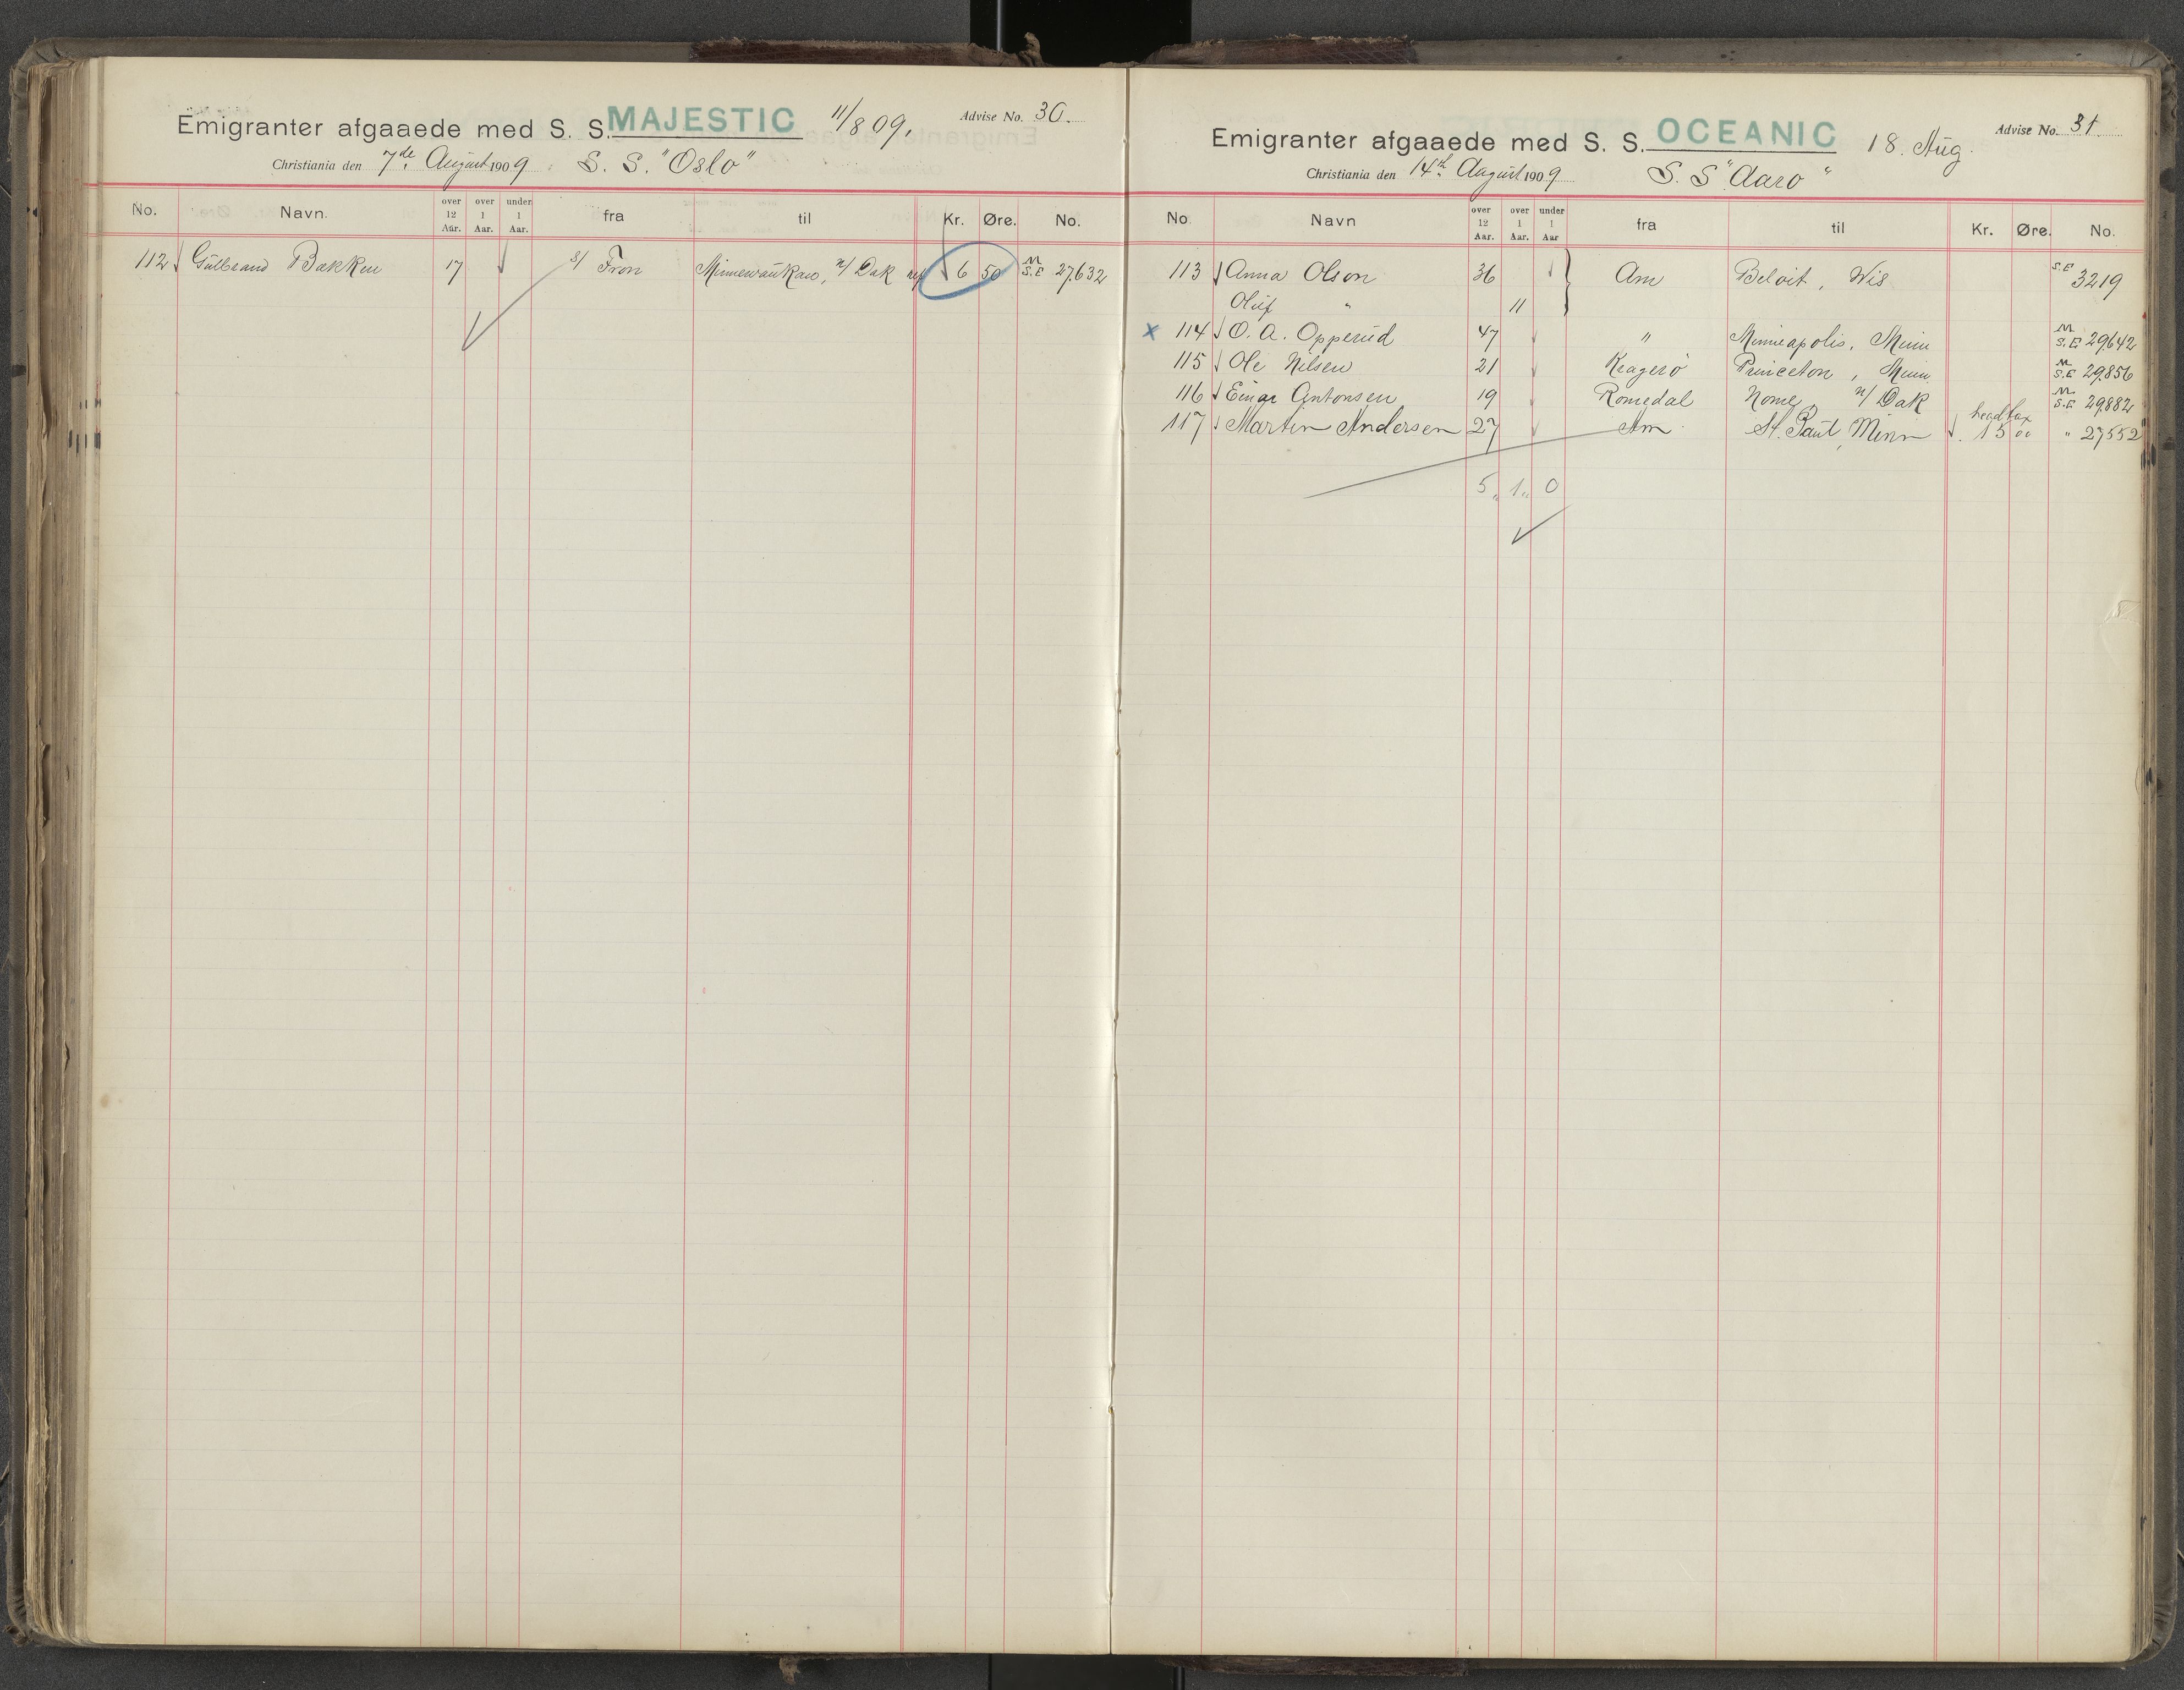 Emigranter afgaaede med S. S. MAJESTIC 11/8 09. Advise No. 30.
Christiania den 7de August 1909 S. S. "Oslo"
No. Navn. over 12 Aar. over 1 Aar. under 1 Aar. fra til Kr. Øre. No.
112 Gulbrand Bakken 17 s/ Fron Minnewaukan, n/ Dak 6 50 M S.E 27632
Emigranter afgaaede med S. S. OCEANIC 18. Aug. Advise No. 31
Christiania den 14th August 1909 S. S "Aaro"
No Navn over 12 Aar. over 1 Aar. under 1 Aar fra til Kr. Øre. No.
113 Anna Olson 36 Am Beloit, Wis S.E 3219
Oluf " 11
x 114 O. A. Opperud 47 " Minneapolis, Minn M S.E 29642
115 Ole Nilsen 21 Kragerö Princeton, Minn. M S.E 29856
116 Einar Antonsen 19 Romedal Nome, n/ Dak M S.E 29882
117 Martin Andersen 27 Am St. Paul, Minn head tax 15 00 " 27552
5 " 1 " 0